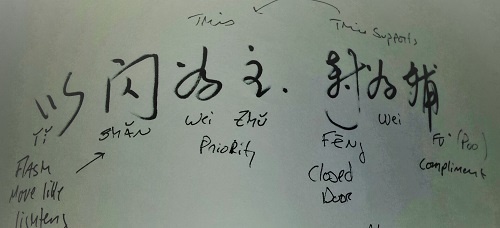 This This Supports
以闪为主. 封为辅
YǏ SHǍN Wei ZHǓ FĒNG Wei Fǔ (Poo)
Priority Closed Door Compliment
FLASH
Move like
lighteng